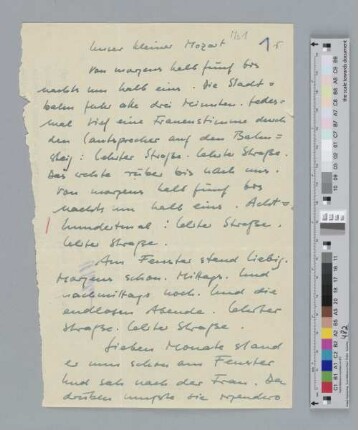 Unser kleiner Mozart
1
Von morgens halb fünf bis
nachts um halb eins. Die Stadt=
bahn fuhr alle drei Minuten. Jedes=
mal rief eine Frauenstimme durch
den Lautsprecher auf den Bahn=
steig: Lehrter Straße. Lehrter Straße.
Das wehte rüber bis nach uns.
Von morgens halb fünf bis
nachts um halb eins. Acht=
hundertmal: Lehrter Straße.
Lehrter Straße.
Am Fenster stand Liebig.
Morgens schon. Mittags. Und
nachmittags noch. Und die
endlosen Abende. Lehrter
Straße. Lehrter Straße.
Sieben Monate stand
er nun schon am Fenster
und sah nach der Frau. Da
drüben mußte sie irgendwo